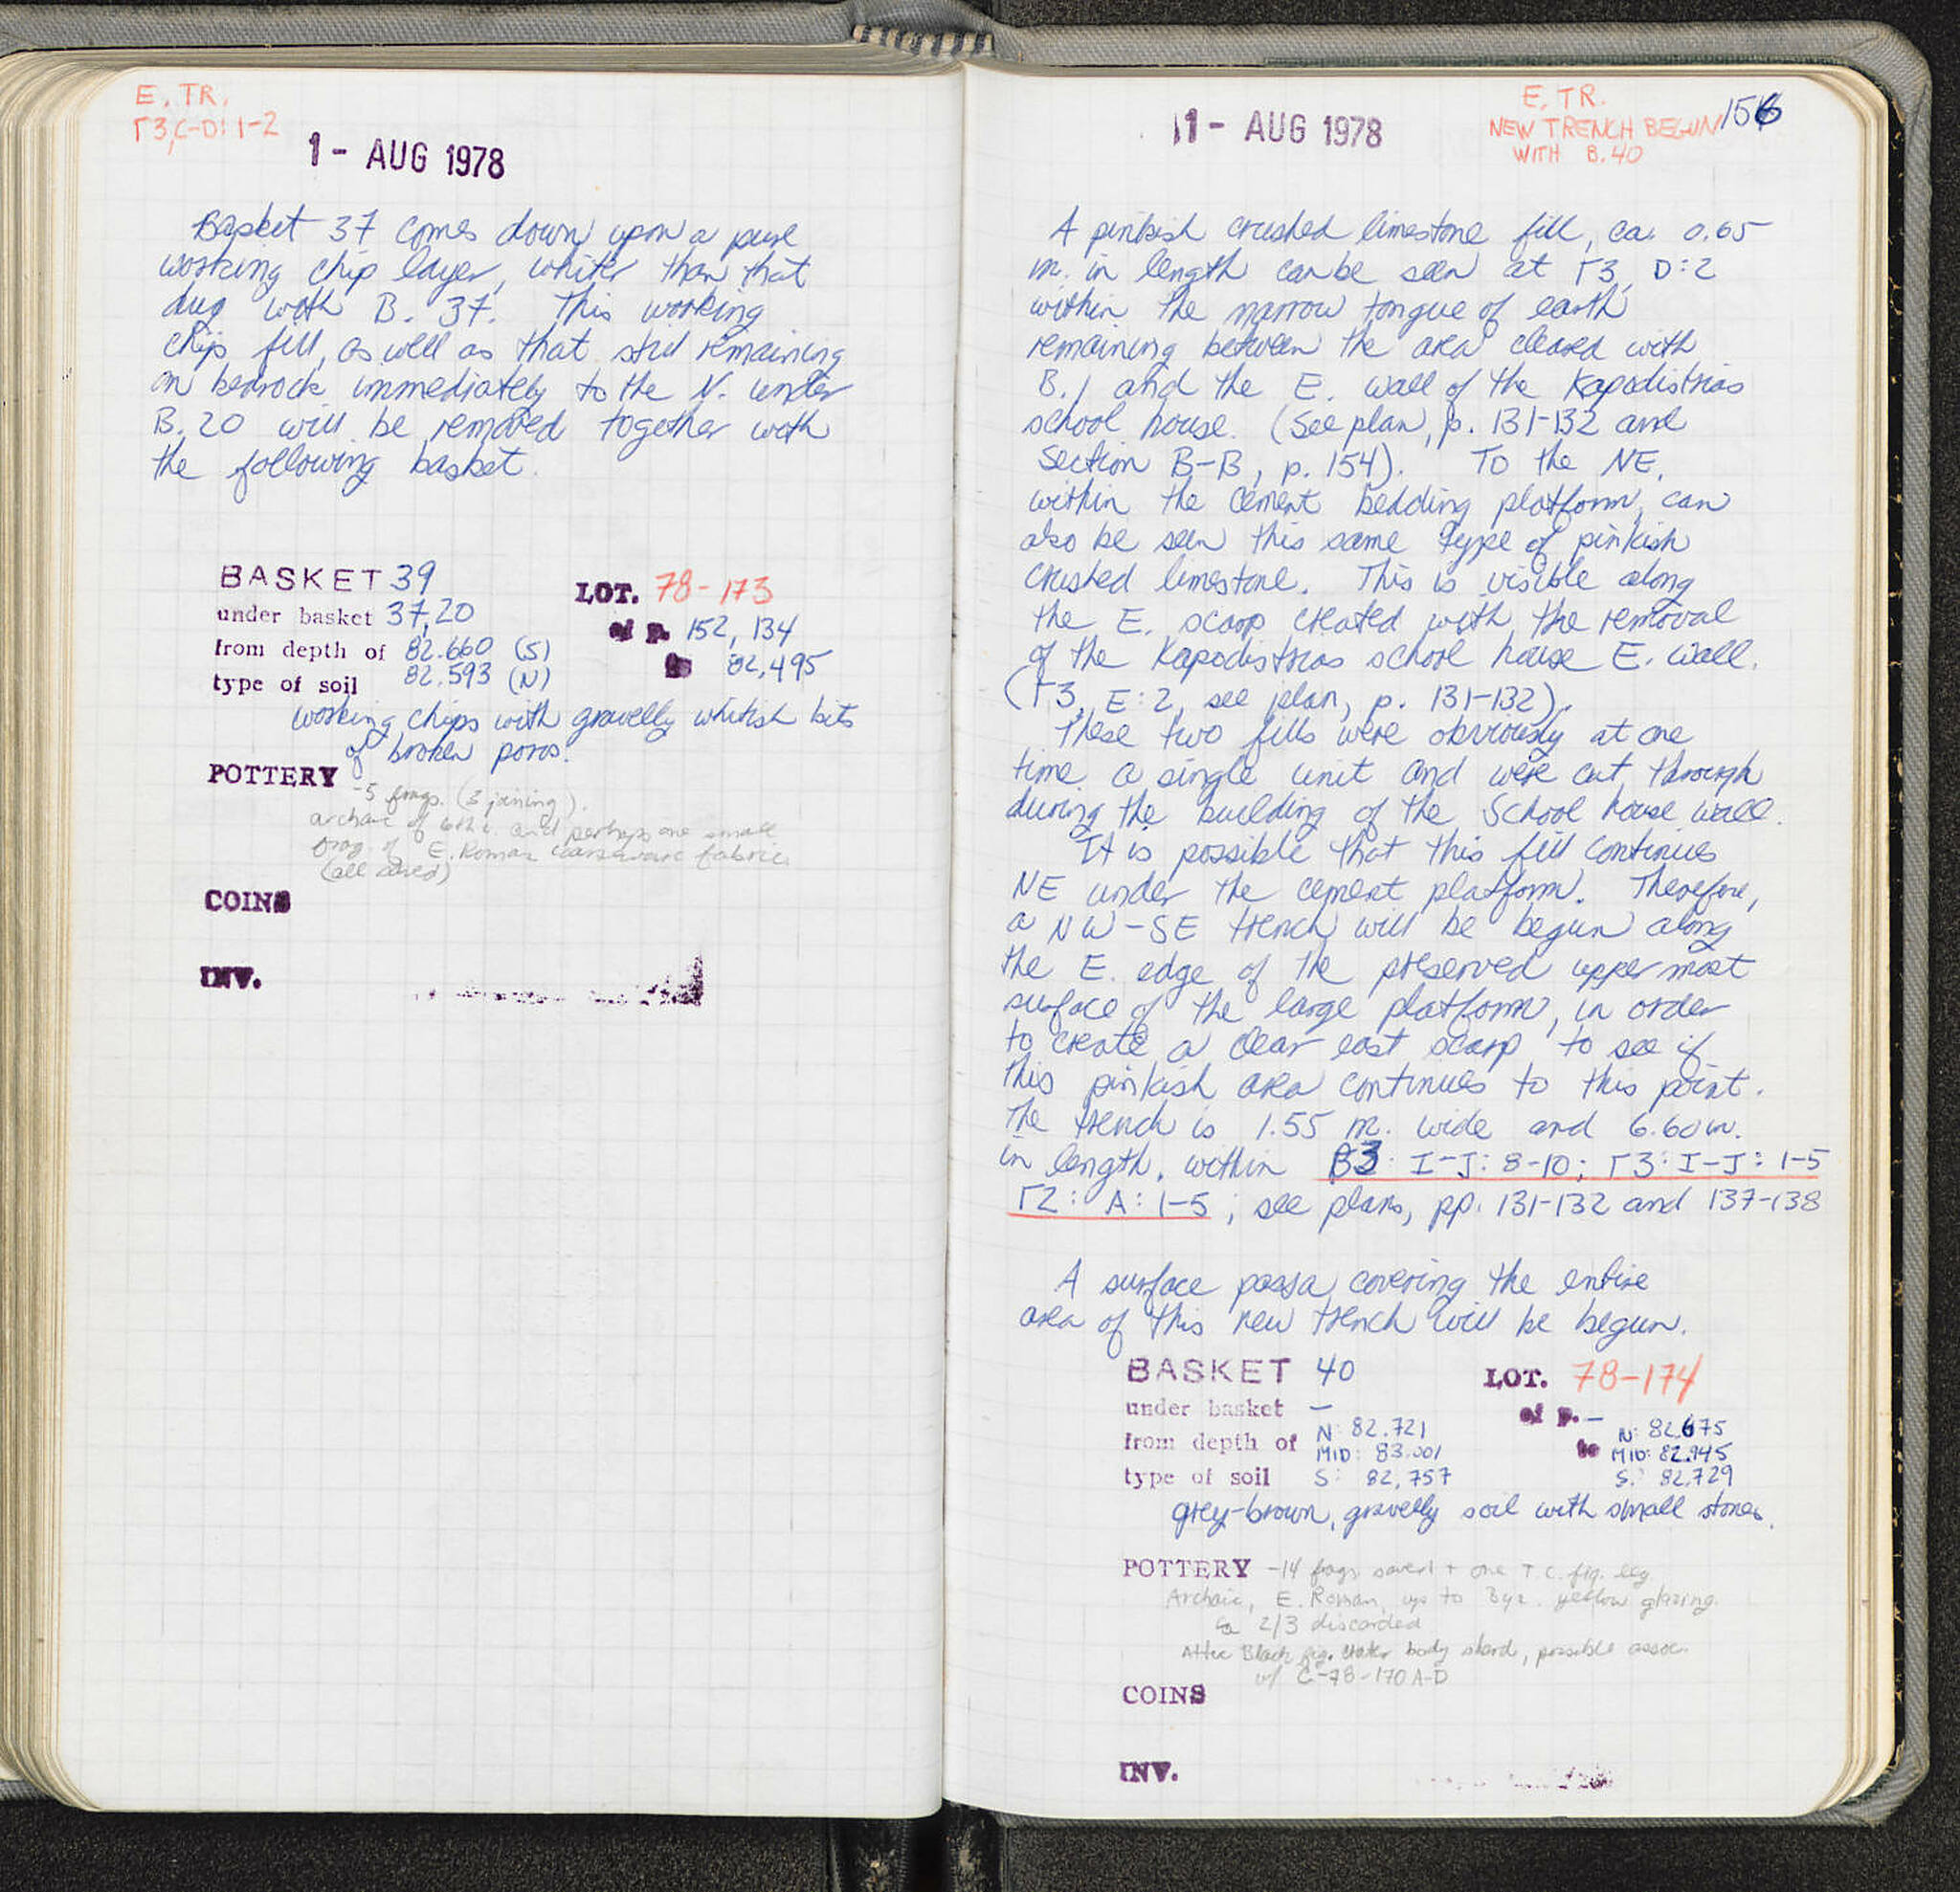 E. TR.
Γ3, C-D: 1-2
1 - AUG 1978
Basket 37 comes down upon a pure
working chip layer, whiter than that
dug with B. 37. This working
chip fill, as well as that still remaining
on bedrock immediately to the N. under
B. 20 will be removed together with
the following basket.
BASKET 39
LOT. 78-173
under basket 37,20
of p. 152, 134
from depth of 82.660 (S)
82.593 (N)
to 82,495
type of soil
working chips with gravelly whitish bits
of broken poros.
POTTERY -5 frags. (3 joining).
archaic of 6th c. and perhaps one small
frag. of E. Roman coarseware fabric.
(all saved)
COINS
INV.
11 - AUG 1978
E. TR.
NEW TRENCH BEGUN
WITH B. 40
156
A pinkish crushed limestone fill, ca. 0.65
m. in length can be seen at Γ3, D:2
within the narrow tongue of earth
remaining between the area cleared with
B. 1 and the E. wall of the Kapodistrias
school house. (See plan, p. 131-132 and
Section B-B, p. 154). To the NE,
within the cement bedding platform, can
also be seen this same type of pinkish
crushed limestone. This is visible along
the E. scarp created with the removal
of the Kapodistrias school house E. wall.
(Γ3, E:2, see plan, p. 131-132).
These two fills were obviously at one
time a single unit and were cut through
during the building of the School house wall.
It is possible that this fill continues
NE under the cement platform. Therefore,
a NW-SE trench will be begun along
the E. edge of the preserved upper most
surface of the large platform, in order
to create a clear east scarp to see if
this pinkish area continues to this point.
The trench is 1.55 m. wide and 6.60 m.
in length, within B3: I-J: 8-10; Γ3: I-J: 1-5
Γ2: A: 1-5; see plans, pp. 131-132 and 137-138
A surface passa covering the entire
area of this new trench will be begun.
BASKET 40
LOT. 78-174
under basket -
of p. -
from depth of N: 82.721
MID: 83.001
S: 82,757
to N: 82.675
MID: 82.945
S: 82.729
type of soil
grey-brown, gravelly soil with small stones.
POTTERY -14 frags saved + one T.C. fig. leg
Archaic, E. Roman, up to Byz. yellow glazing.
ca 2/3 discarded
Attic Black fig. krater body sherd, possible assoc.
w/ C-78-170 A-D
COINS
INV.